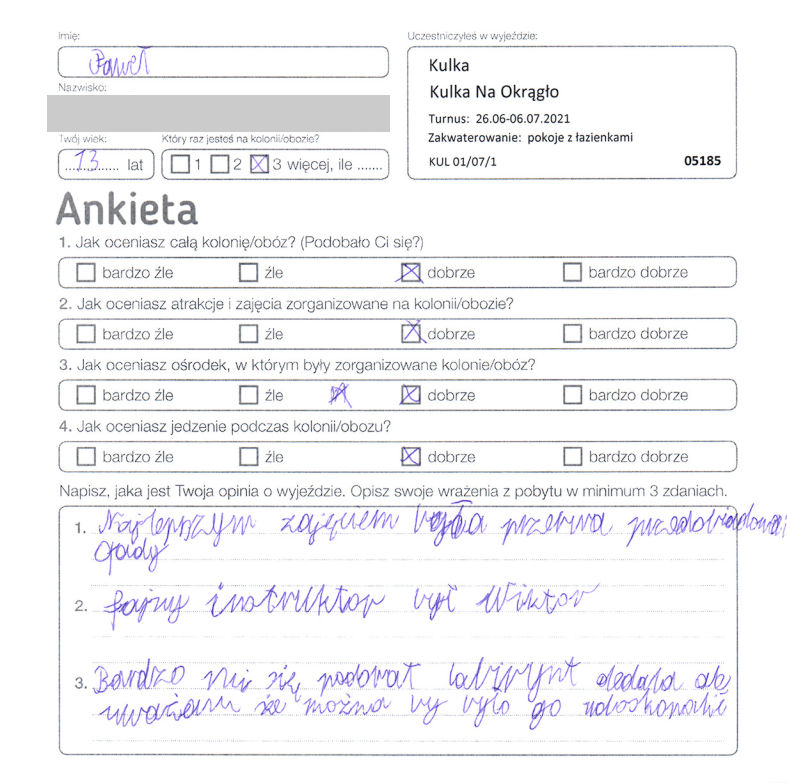 Imię:
Paweł
Uczestniczyłeś w wyjeździe:
Kulka
Kulka Na Okrągło
Turnus: 26.06-06.07.2021
Zakwaterowanie: pokoje z łazienkami
KUL 01/07/1 05185
Nazwisko:
Twój wiek: Który raz jesteś na kolonii/obozie?
13 lat 1 2 3 więcej, ile .......
Ankieta
1. Jak oceniasz całą kolonię/obóz? (Podobało Ci się?)
bardzo źle źle dobrze bardzo dobrze
2. Jak oceniasz atrakcje i zajęcia zorganizowane na kolonii/obozie?
bardzo źle źle dobrze bardzo dobrze
3. Jak oceniasz ośrodek, w którym były zorganizowane kolonie/obóz?
bardzo źle źle dobrze bardzo dobrze
4. Jak oceniasz jedzenie podczas kolonii/obozu?
bardzo źle źle dobrze bardzo dobrze
Napisz, jaka jest Twoja opinia o wyjeździe. Opisz swoje wrażenia z pobytu w minimum 3 zdaniach.
1. Najlepszym zajęciem była przerwa
2. fajny instruktor vył Wiktor
3. Bardzo mi się podobał labirynt dedala ale
uważam że można vy vyło go udoskonalić